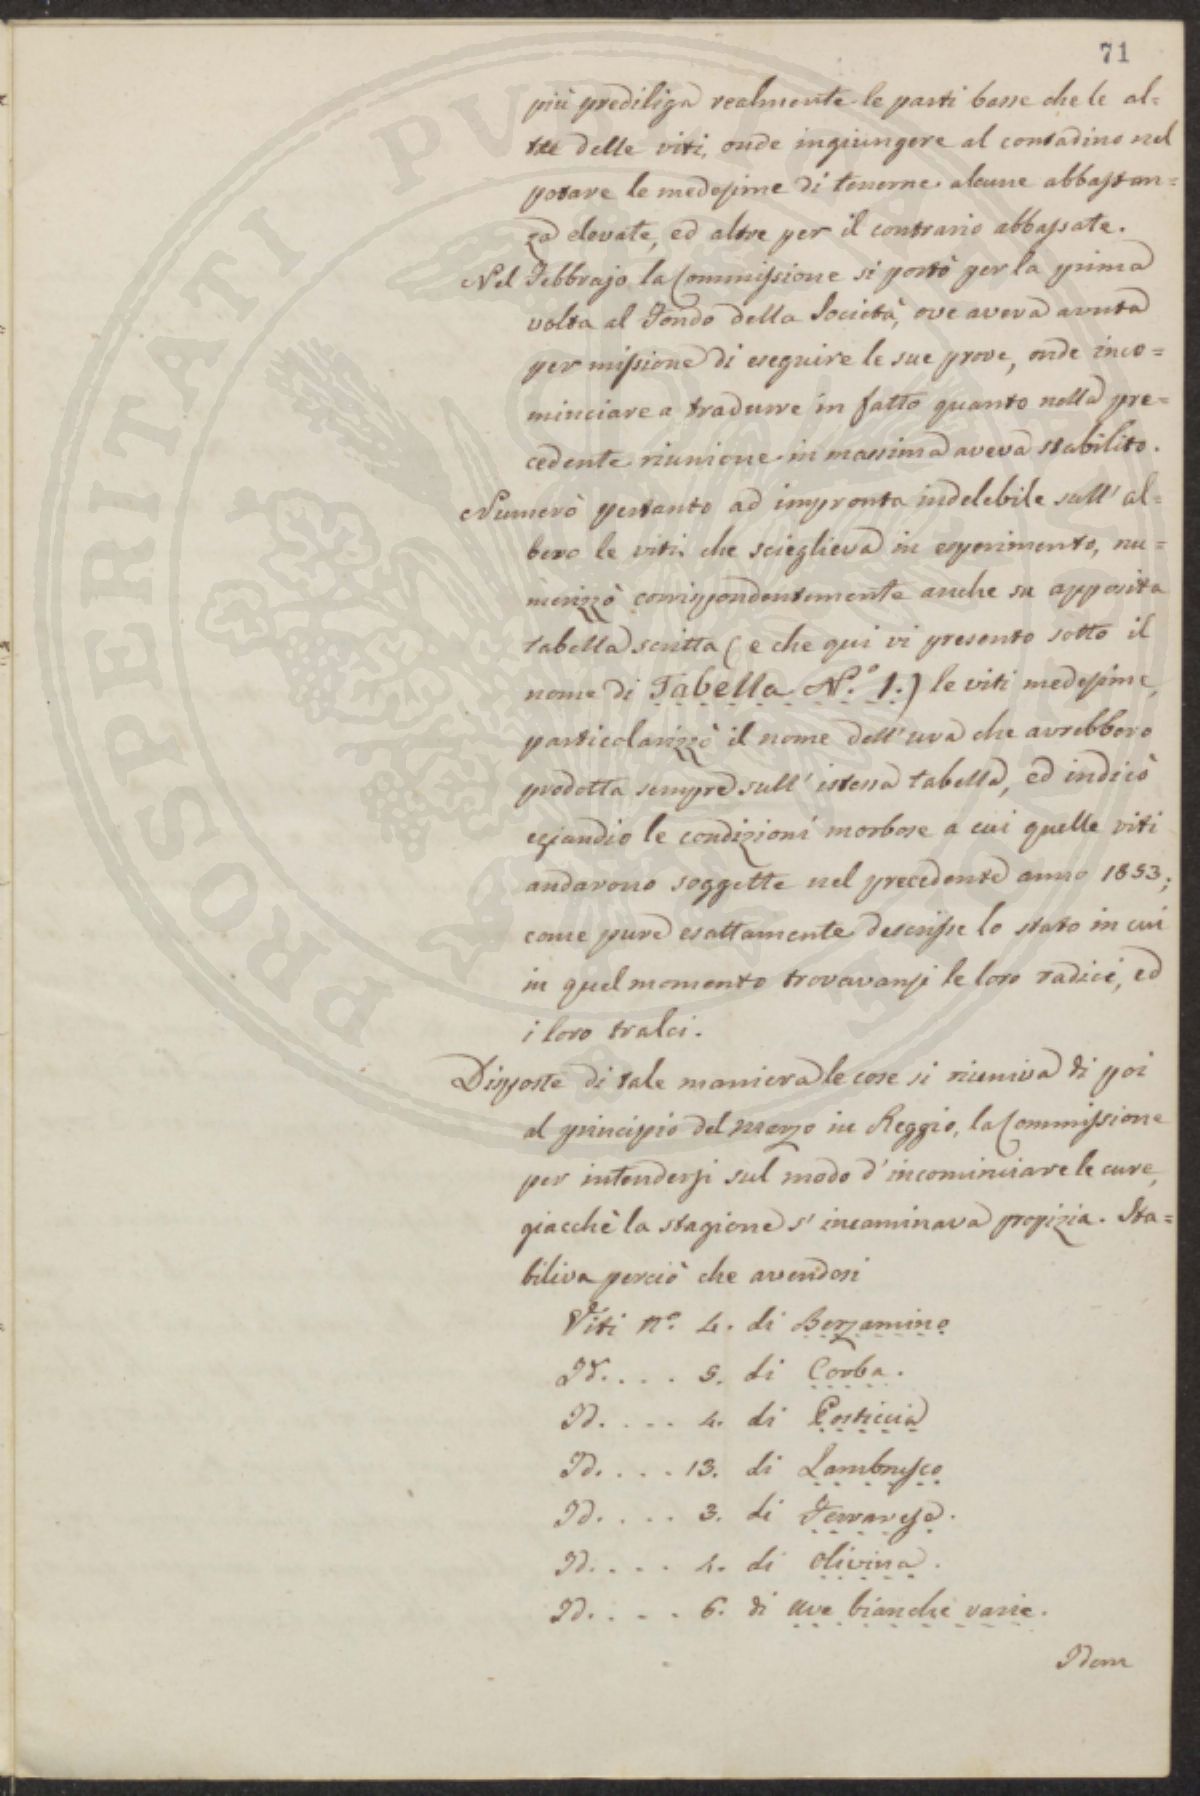 71
più prediliga realmente le parti basse che le al=
tre delle viti, onde ingiungere al contadino nel
potare le medesime di tenerne alcune abbastan=
za elevate, ed altre per il contrario abbassate.
Nel Febbrajo la Commissione si portò per la prima
volta al Fondo della Società, ove aveva avuta
permissione di eseguire le sue prove, onde inco=
minciare a tradurre in fatto quanto nella pre=
cedente riunione in massima aveva stabilito.
Numerò pertanto ad impronta indelebile sull' al=
bero le viti che scieglieva in esperimento, nu=
merizzò corrispondentemente anche su apposita
tabella scritta (e che qui vi presento sotto il
nome di Tabella N.° 1.) le viti medesime,
particolarizzò il nome dell' uva che avrebbero
prodotta sempre sull' istessa tabella, ed indicò
eziandio le condizioni morbose a cui quelle viti
andarono soggette nel precedente anno 1853;
come pure esattamente descrisse lo stato in cui
in quel momento trovavansi le loro radici, ed
i loro tralci.
Disposte di tale maniera le cose si riuniva di poi
al principio del Marzo in Reggio, la Commissione
per intendersi sul modo d' incominciare le cure,
giacchè la stagione s' incaminava propizia. Sta=
biliva perciò che avendosi
Viti n.° 4. di Berzamino
Id. . . . 5. di Corba.
Id. . . . 4. di Posticcia
Id. . . . 13. di Lambrusco
Id. . . . 3. di Ferrarese.
Id. . . . 4. di Olivina.
Id. . . . 6. di Uve bianche varie.
Idem
PROSPERITATI PUBLICAE